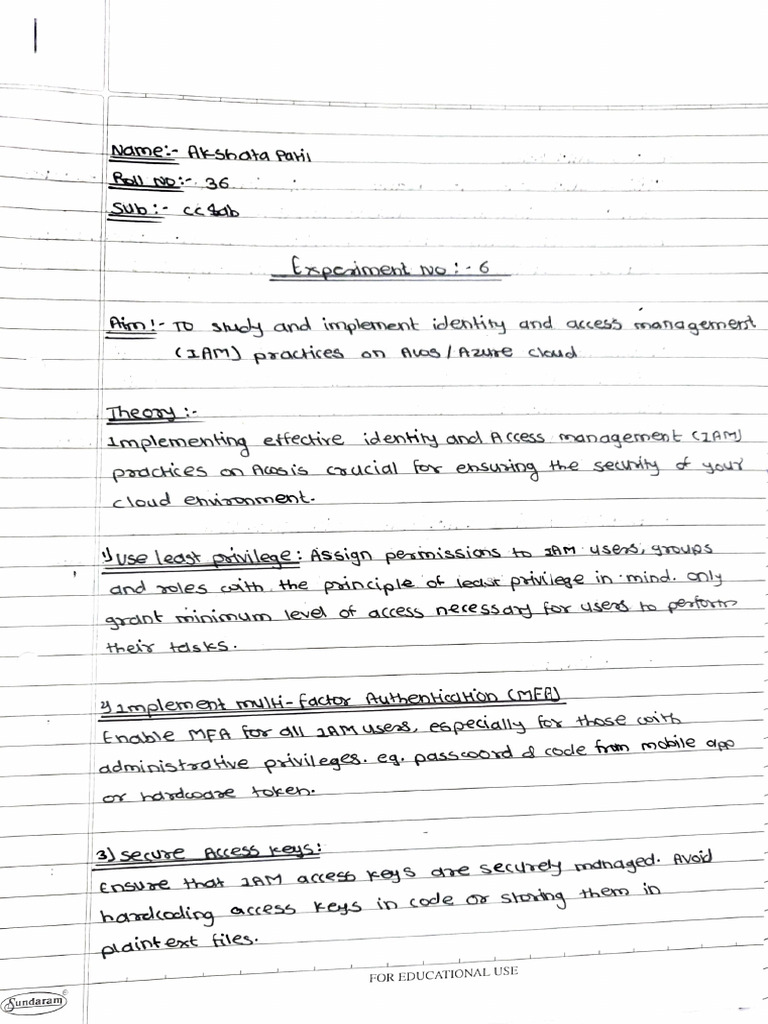 Name:- Akshata Patil
Roll No:- 36
Sub:- cc lab
Experiment No:- 6
Aim:- To study and implement identity and access management
(IAM) practices on Aws/Azure cloud
Theory:-
Implementing effective identity and Access management (IAM)
practices on Aws is crucial for ensuring the security of your
cloud environment.
1) Use least privilege: Assign permissions to IAM users, groups
and roles with the principle of least privilege in mind. only
grant minimum level of access necessary for users to perform
their tasks.
2) Implement multi-factor Authentication (MFA)
Enable MFA for all IAM users, especially for those with
administrative privileges. eg. password & code from mobile app
or hardware token.
3) Secure Access Keys:
Ensure that IAM access keys are securely managed. Avoid
hardcoding access keys in code or storing them in
plaintext files.
FOR EDUCATIONAL USE
Sundaram